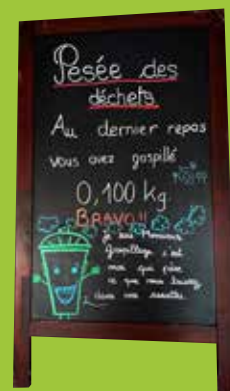 Pesée des
déchets
Au dernier repas
vous avez gaspillé
0,100 kg
BRAVO!!
Je suis Monsieur
Gaspillage, c'est
moi qui pèse
ce que vous laissez
dans vos assiettes.